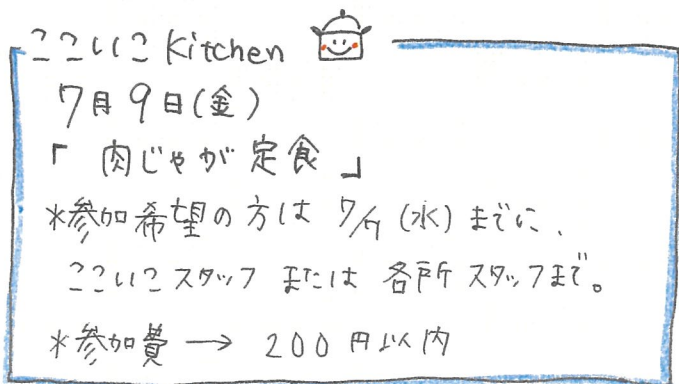 ここいこ Kitchen
7月9日(金)
「肉じゃが定食」
*参加希望の方は 7/7(水)までに、
ここいこスタッフ または 各所スタッフまで。
*参加費 → 200円以内